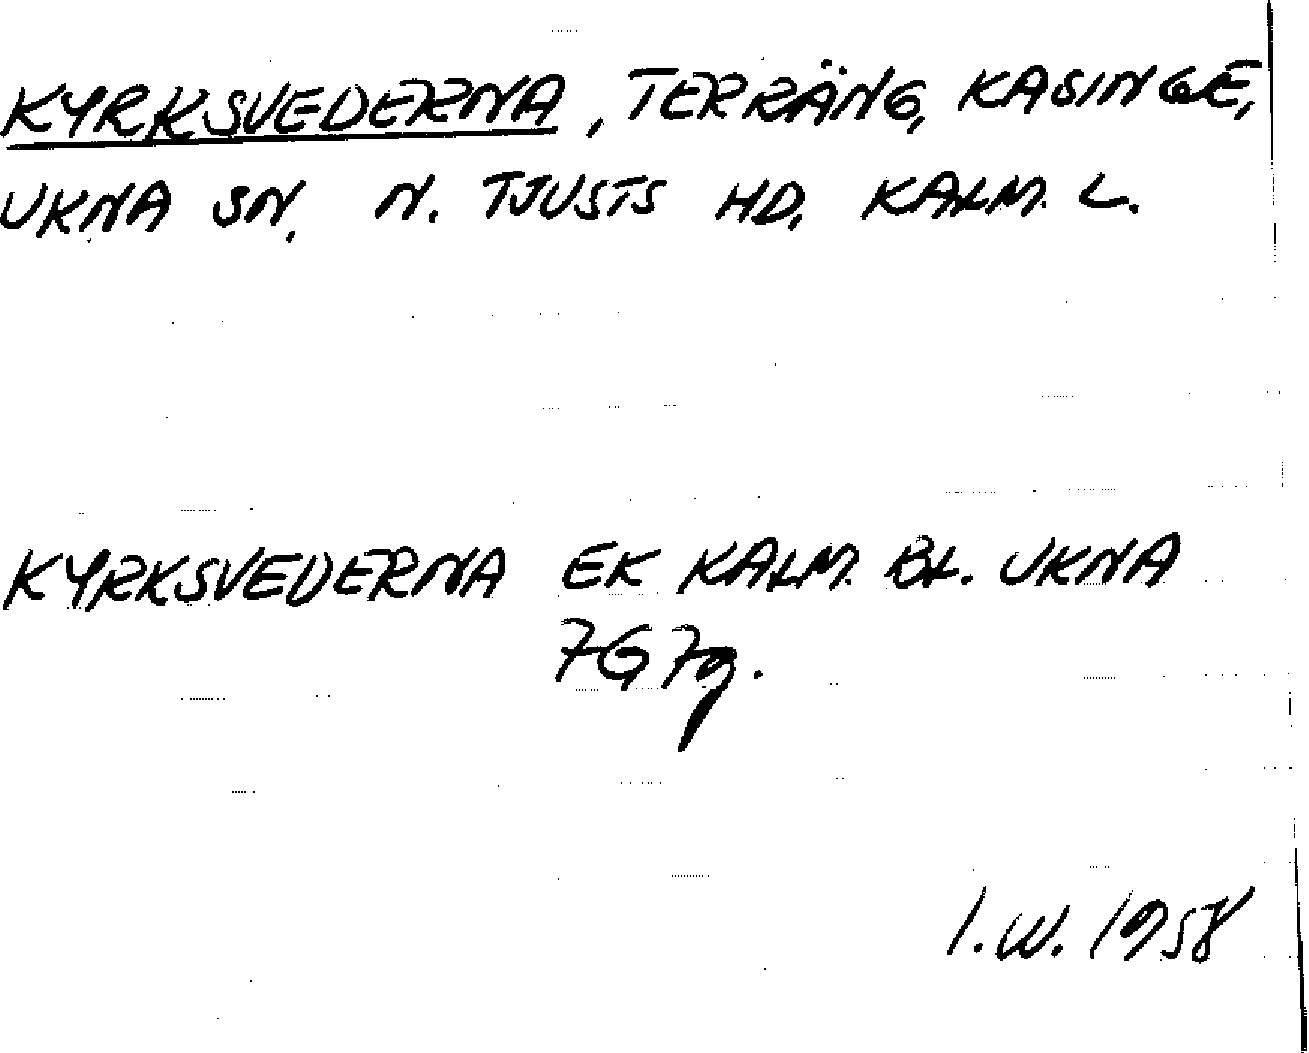 KYRKSVEDERNA, TERRÄNG, KASINGE,
UKNA SN, N. TJUSTS HD, KALM. L.
KYRKSVEDERNA EK KALM. BL. UKNA
7G7g.
I.W. 1958